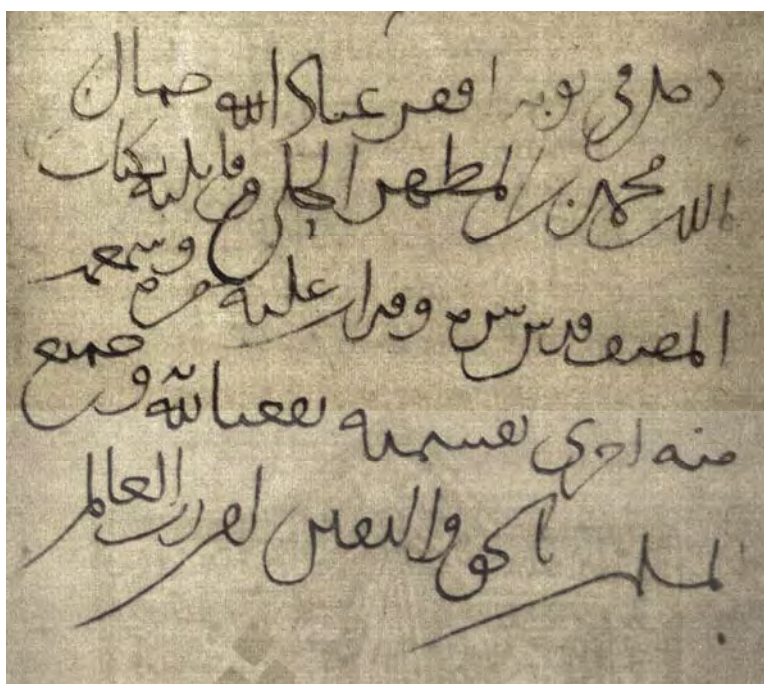 دخل في نوبة افقر عباد الله جمال
الدين محمد بن المطهر الحلي و قابلته بكتاب
المصنف قدس سره وقرات عليه مرة وسمعته
منه اخرى بقسميه نفعنا الله و جميع
الحق واليقين رب العالم